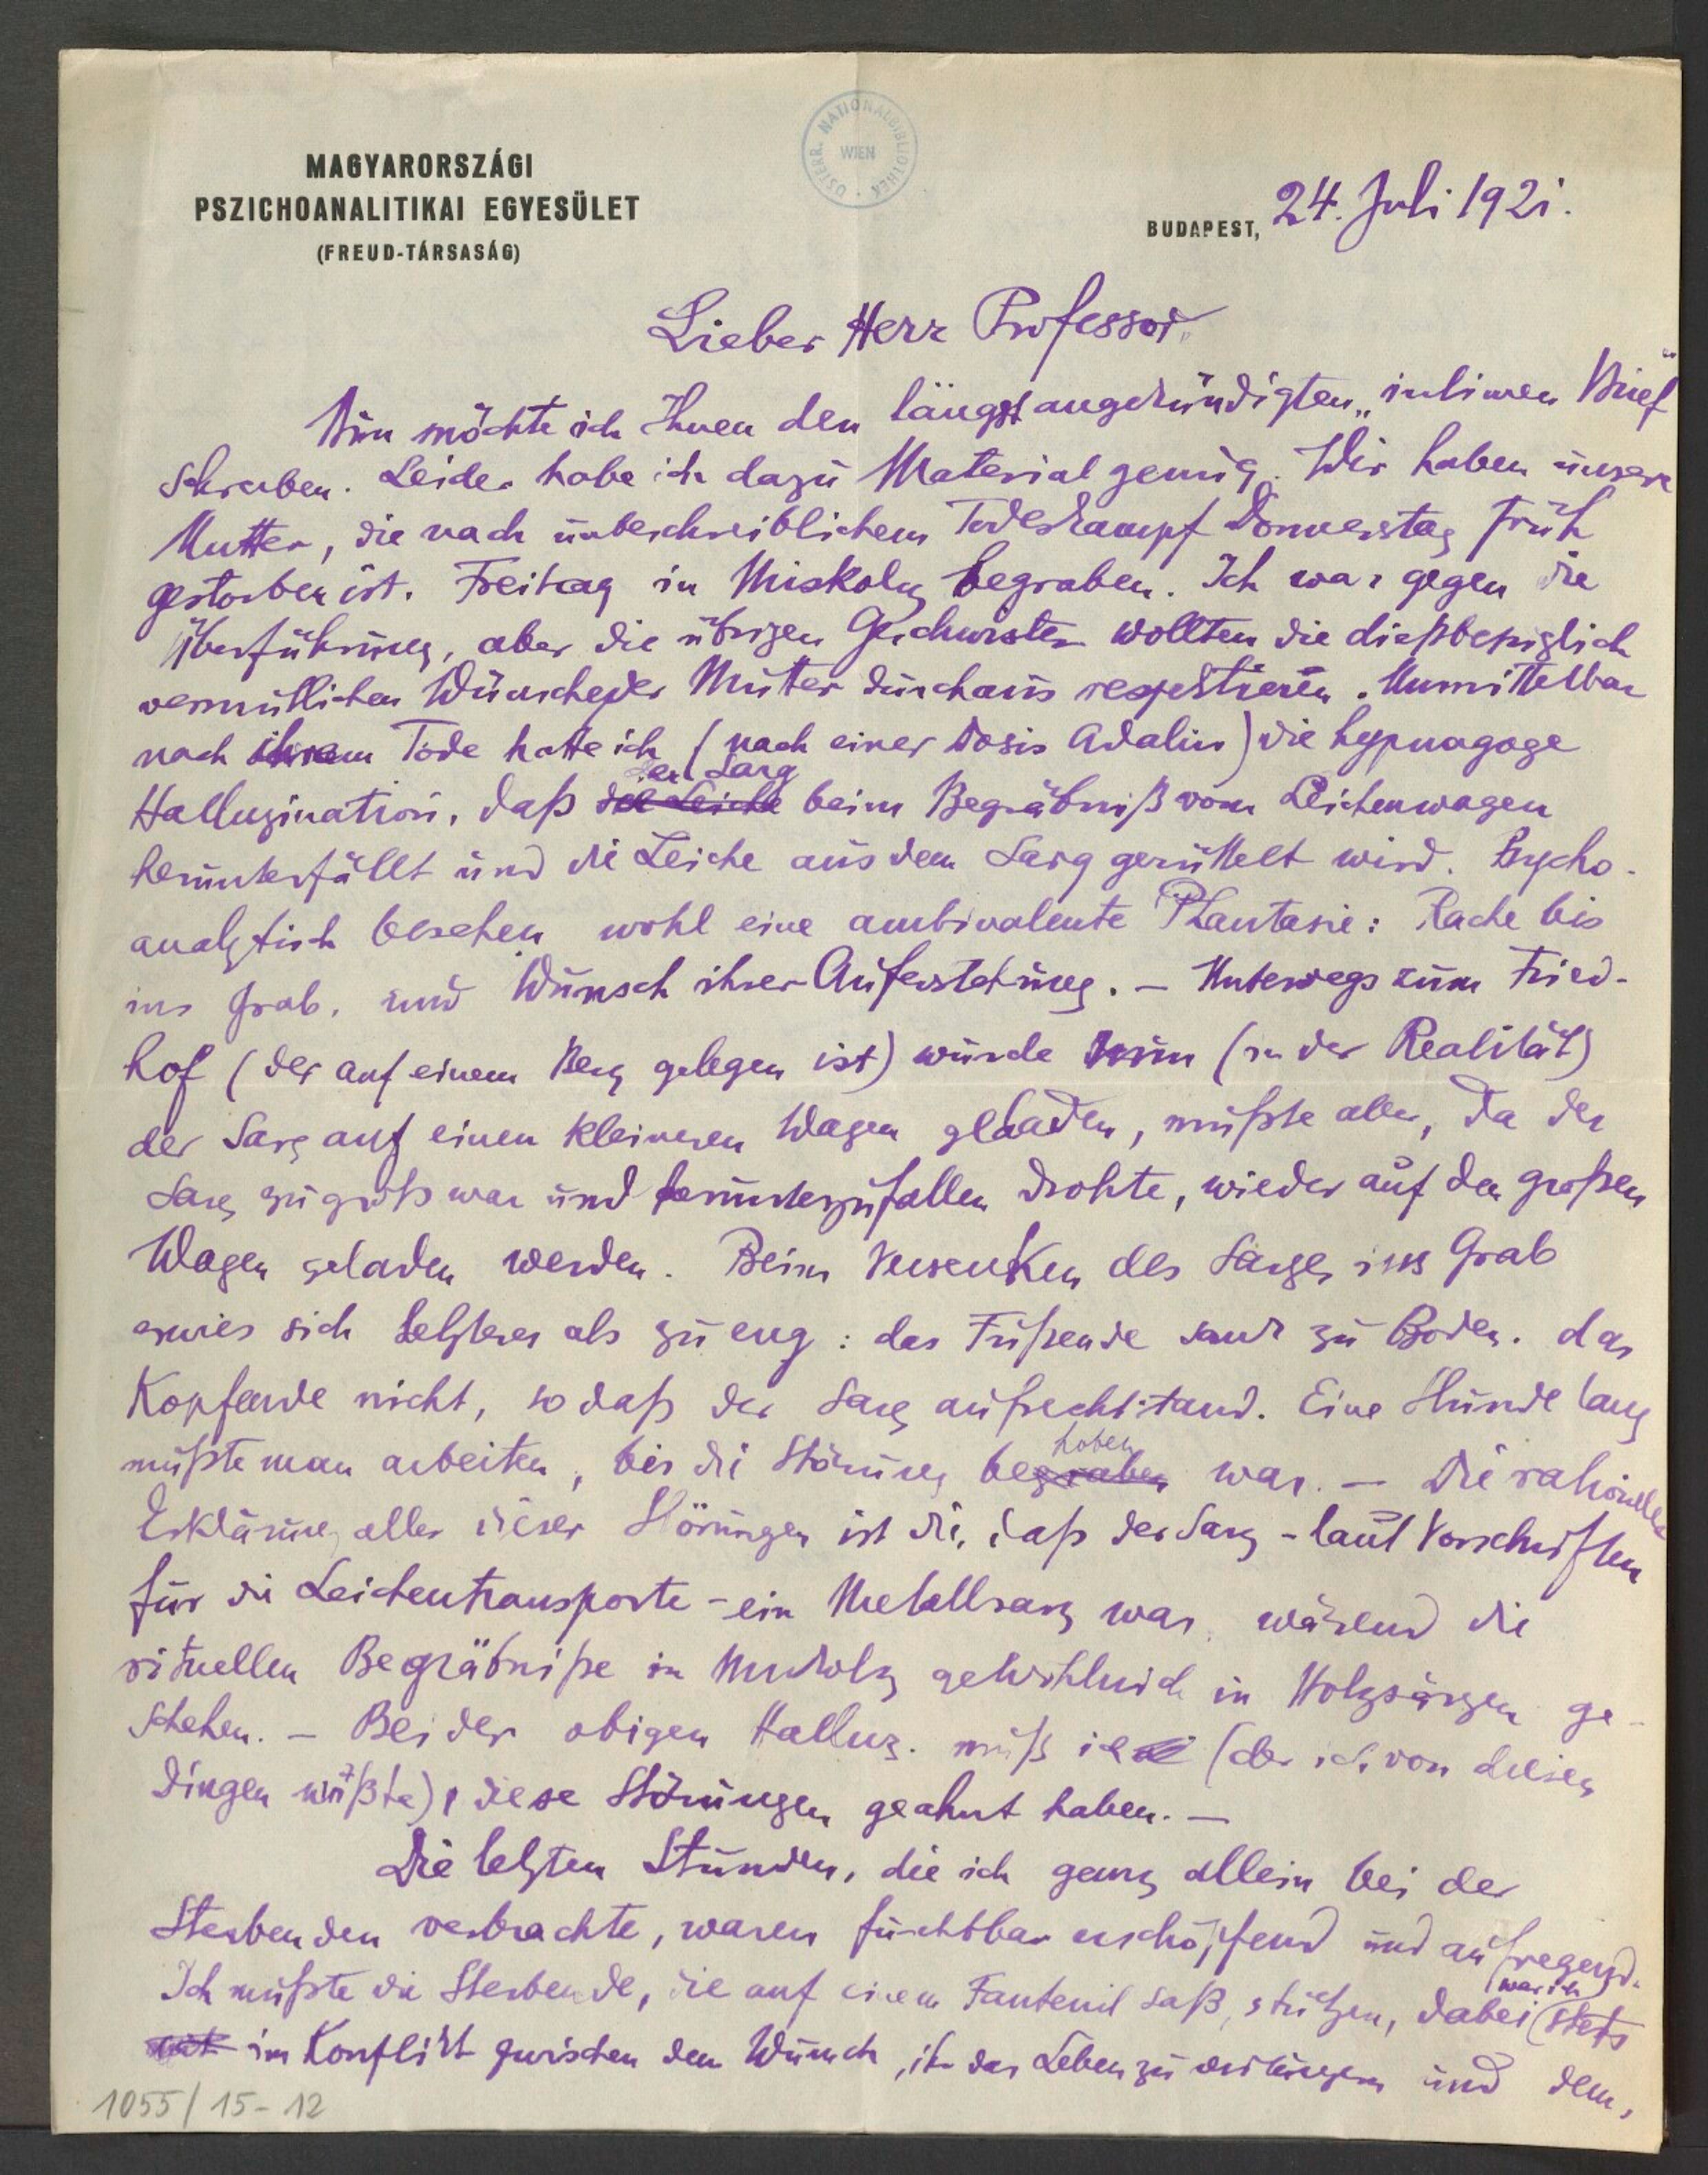 MAGYARORSZÁGI
PSZICHOANALITIKAI EGYESÜLET
(FREUD-TÁRSASÁG)
ÖSTERR. NATIONALBIBLIOTHEK
WIEN
BUDAPEST, 24. Juli 1921.
Lieber Herr Professor.
Nun möchte ich Ihnen den längst angekündigten „intimen Brief“
schreiben. Leider habe ich dazu Material genug. Wir haben unsere
Mutter, die nach unbeschreiblichem Todeskampf Donnerstag früh
gestorben ist. Freitag in Miskolcz begraben. Ich war gegen die
Überführung, aber die übrigen Geschwister wollten die dießbezüglich
vermutlichen Wünsche der Mutter durchaus respektieren. Unmittelbar
nach ihrem Tode hatte ich (nach einer Dosis Adalin) die hypnagoge
Halluzination, daß die Leiche der Sarg beim Begräbniß vom Leichenwagen
herunterfällt und die Leiche aus dem Sarg gerüttelt wird. Psycho-
analytisch besehen wohl eine ambivalente Phantasie: Rache bis
ins Grab, und Wunsch ihrer Auferstehung. – Unterwegs zum Fried-
hof (der auf einem Berg gelegen ist) wurde nun (in der Realität)
der Sarg auf einen kleineren Wagen geladen, mußte aber, da der
Sarg zu groß war und herunterzufallen drohte, wieder auf den großen
Wagen geladen werden. Beim Versenken des Sarges ins Grab
erwies sich letzteres als zu eng: das Fußende sank zu Boden. das
Kopfende nicht, so daß der Sarg aufrecht stand. Eine Stunde lang
mußte man arbeiten, bis die Störung begraben hoben war. – Die rationelle
Erklärung aller dieser Störungen ist die, daß der Sarg – laut Vorschriften
für die Leichentransporte – ein Metallsarg war, wärend die
rituellen Begräbniße in Miskolcz gewöhnlich in Holzsärgen ge-
schehen. – Bei der obigen Halluz. muß ich (der ich von diesen
Dingen wußte), diese Störungen geahnt haben. –
Die letzten Stunden, die ich ganz allein bei der
Sterbenden verbrachte, waren furchtbar erschöpfend und aufregend.
Ich mußte die Sterbende, die auf einem Fauteuil saß, stützen, dabei war ich stets
im Konflikt zwischen dem Wunsch, ihr das Leben zu verlängern und dem,
1055/15-12